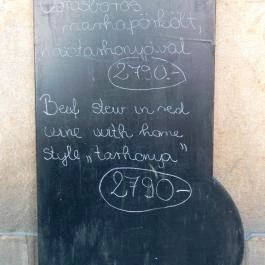 Vörösboros
marhapörkölt,
házitarhonyával
2790.-
Beef stew in red
wine with home
style „tarhonya"
2790-